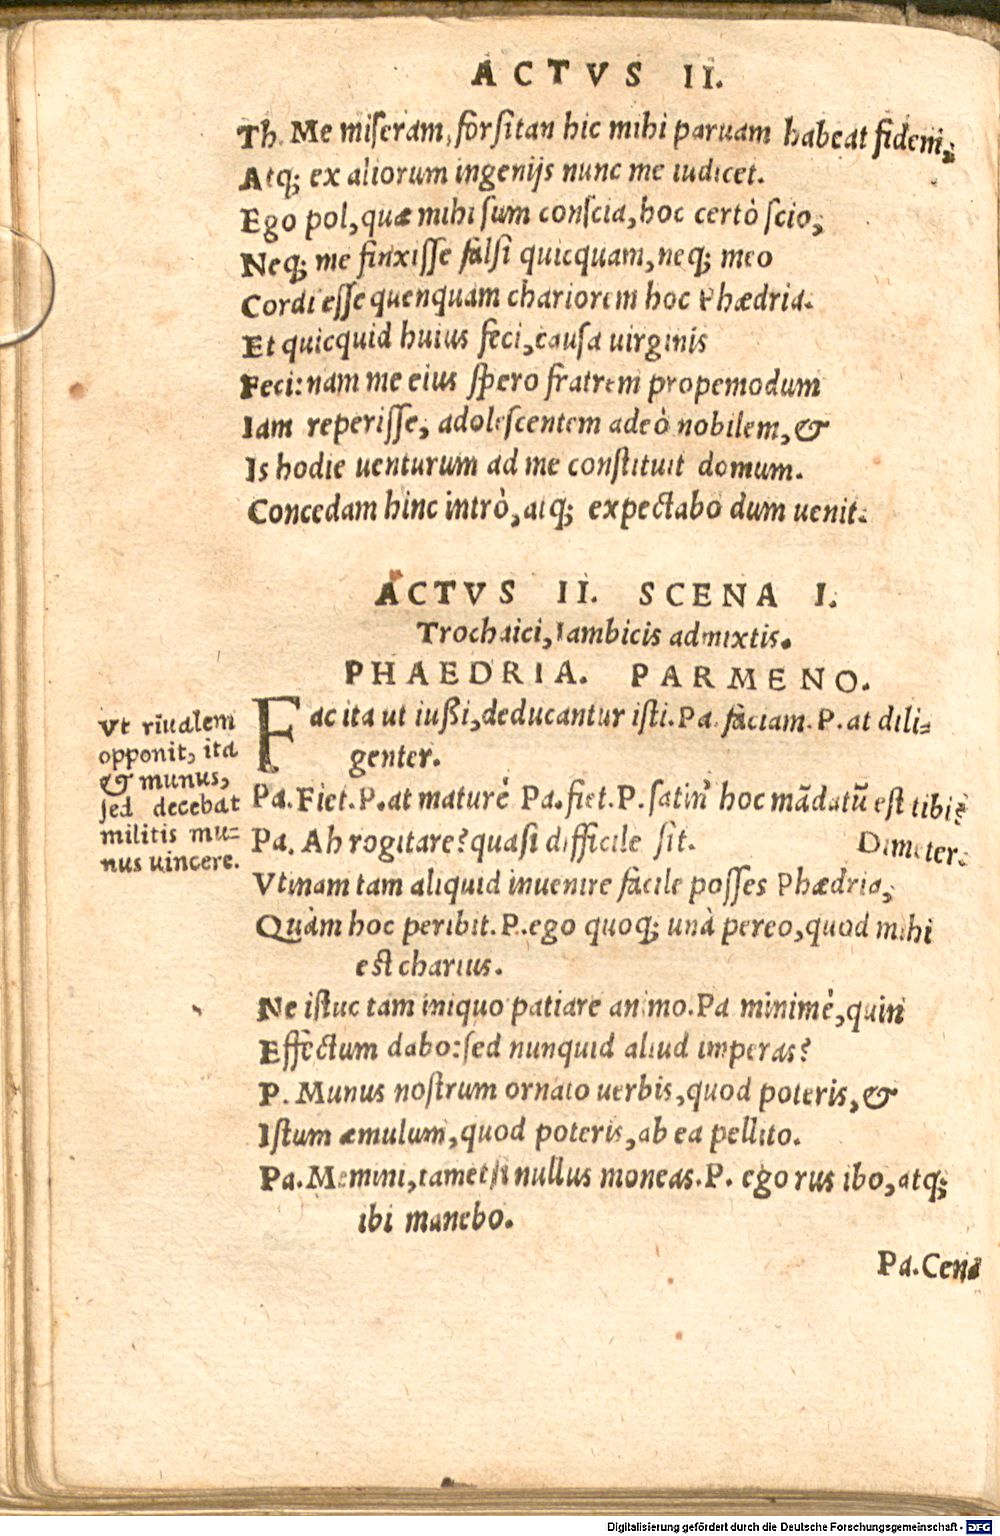 ACTVS II.
Th. Me miſeram, forſitan hic mihi paruam habeat fidem,
Atq; ex aliorum ingenijs nunc me iudicet.
Ego pol, quæ mihi ſum conſcia, hoc certò ſcio,
Neq; me finxiſſe falſi quicquam, neq; meo
Cordi eſſe quenquam chariorem hoc Phædria.
Et quicquid huius feci, cauſa uirginis
Feci: nam me eius ſpero fratrem propemodum
Iam reperiſſe, adoleſcentem adeò nobilem, &
Is hodie uenturum ad me conſtituit domum.
Concedam hinc intrò, atq; expectabo dum uenit.
ACTVS II. SCENA I.
Trochaici, Iambicis admixtis.
PHAEDRIA. PARMENO.
Fac ita ut iußi, deducantur iſti. Pa. faciam. P. at dili-
genter.
Pa. Fiet. P. at maturè Pa. fiet. P. ſatin' hoc mādatū eſt tibi?
Pa. Ah rogitare? quaſi difficile ſit. Dimeter.
Vtinam tam aliquid inuenire facile poſſes Phædria,
Quàm hoc peribit. P. ego quoq; unà pereo, quod mihi
eſt charius.
Ne iſtuc tam iniquo patiare animo. Pa minimè, quin
Effectum dabo: ſed nunquid aliud imperas?
P. Munus noſtrum ornato uerbis, quod poteris, &
Iſtum æmulum, quod poteris, ab ea pellito.
Pa. Memini, tametſi nullus moneas. P. ego rus ibo, atq;
ibi manebo.
Pa. Cenſ
Vt riualem
opponit, ita
& munus,
ſed decebat
militis mu-
nus uincere.
Digitalisierung gefördert durch die Deutsche Forschungsgemeinschaft - DFG